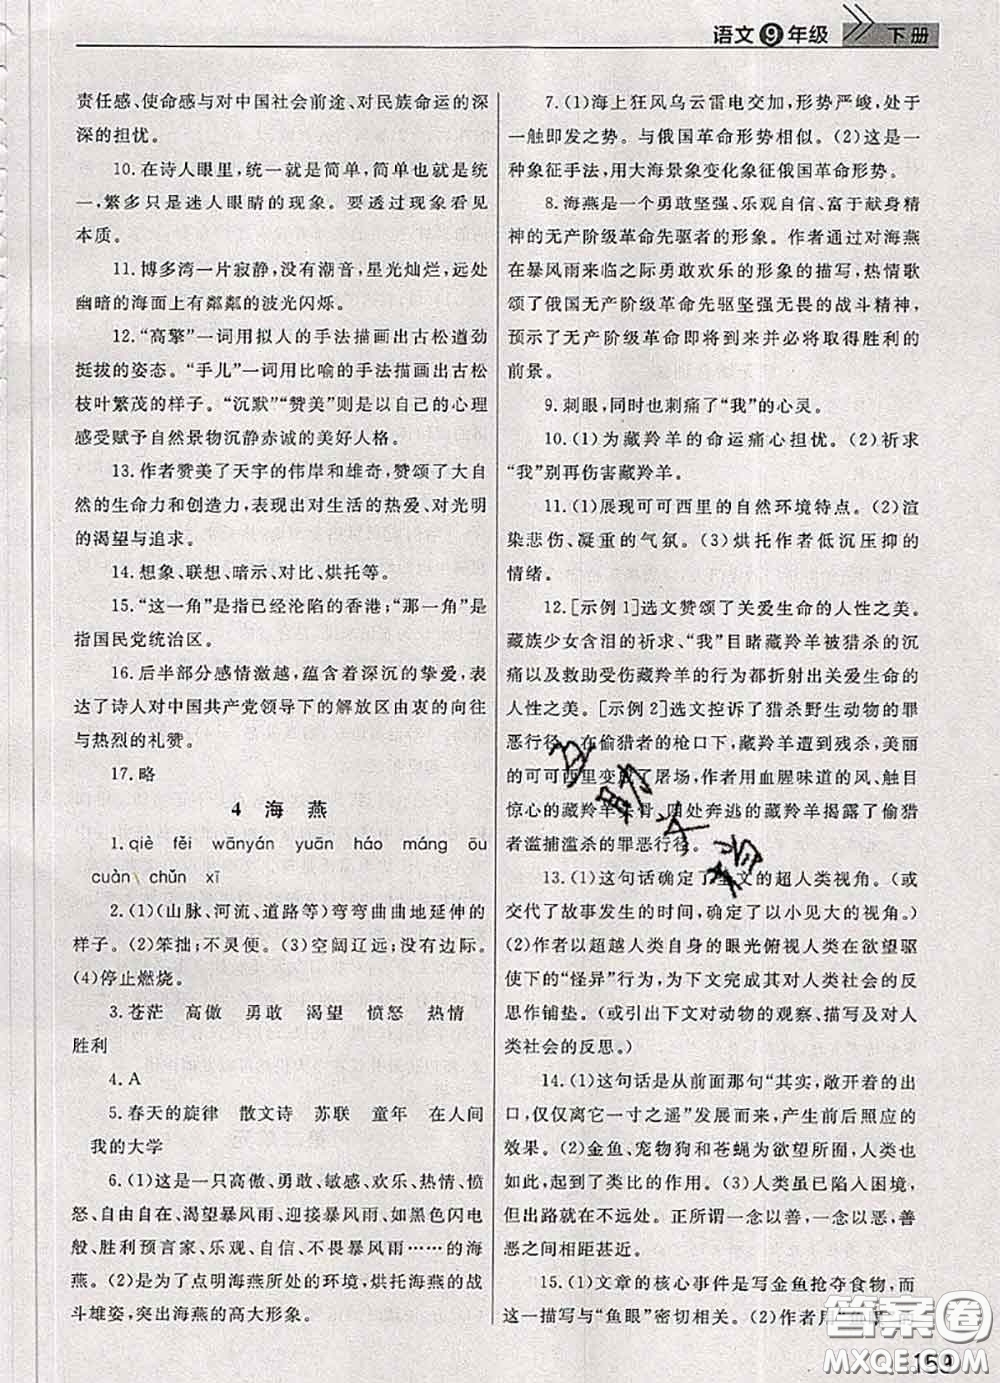 语文9年级 下册
责任感、使命感与对中国社会前途、对民族命运的深
深的担忧。
10.在诗人眼里,统一就是简单,简单就是统
一,繁多只是迷人眼睛的现象。要透过现象看见
本质。
11.博多湾一片寂静,没有潮音,星光灿烂,远处
幽暗的海面上有粼粼的波光闪烁。
12.“高擎”一词用拟人的手法描画出古松遒劲
挺拔的姿态。“手儿”一词用比喻的手法描画出古松
枝叶繁茂的样子。“沉默”“赞美”则是以自己的心理
感受赋予自然景物沉静赤诚的美好人格。
13.作者赞美了天宇的伟岸和雄奇,赞颂了大自
然的生命力和创造力,表现出对生活的热爱、对光明
的渴望与追求。
14.想象、联想、暗示、对比、烘托等。
15.“这一角”是指已经沦陷的香港;“那一角”是
指国民党统治区。
16.后半部分感情激越,蕴含着深沉的挚爱,表
达了诗人对中国共产党领导下的解放区由衷的向往
与热烈的礼赞。
17.略
4 海燕
1.qiè fěi wānyán yuān háo máng ōu
cuàn chǔn xī
2.(1)(山脉、河流、道路等)弯弯曲曲地延伸的
样子。(2)笨拙;不灵便。(3)空阔辽远;没有边际。
(4)停止燃烧。
3.苍茫 高傲 勇敢 渴望 愤怒 热情
胜利
4.A
5.春天的旋律 散文诗 苏联 童年 在人间
我的大学
6.(1)这是一只高傲、勇敢、敏感、欢乐、热情、愤
怒、自由自在、渴望暴风雨、迎接暴风雨、如黑色闪电
般、胜利预言家、乐观、自信、不畏暴风雨……的海
燕。(2)是为了点明海燕所处的环境,烘托海燕的战
斗雄姿,突出海燕的高大形象。
7.(1)海上狂风乌云雷电交加,形势严峻,处于
一触即发之势。与俄国革命形势相似。(2)这是一
种象征手法,用大海景象变化象征俄国革命形势。
8.海燕是一个勇敢坚强、乐观自信、富于献身精
神的无产阶级革命先驱者的形象。作者通过对海燕
在暴风雨来临之际勇敢欢乐的形象的描写,热情歌
颂了俄国无产阶级革命先驱坚强无畏的战斗精神,
预示了无产阶级革命即将到来并必将取得胜利的
前景。
9.刺眼,同时也刺痛了“我”的心灵。
10.(1)为藏羚羊的命运痛心担忧。(2)祈求
“我”别再伤害藏羚羊。
11.(1)展现可可西里的自然环境特点。(2)渲
染悲伤、凝重的气氛。(3)烘托作者低沉压抑的
情绪。
12.[示例1]选文赞颂了关爱生命的人性之美。
藏族少女含泪的祈求、“我”目睹藏羚羊被猎杀的沉
痛以及救助受伤藏羚羊的行为都折射出关爱生命的
人性之美。[示例2]选文控诉了猎杀野生动物的罪
恶行径。在偷猎者的枪口下,藏羚羊遭到残杀,美丽
的可可西里变成了屠场,作者用血腥味道的风、触目
惊心的藏羚羊头骨、四处奔逃的藏羚羊揭露了偷猎
者滥捕滥杀的罪恶行径。
13.(1)这句话确定了全文的超人类视角。(或
交代了故事发生的时间,确定了以小见大的视角。)
(2)作者以超越人类自身的眼光俯视人类在欲望驱
使下的“怪异”行为,为下文完成其对人类社会的反
思作铺垫。(或引出下文对动物的观察、描写及对人
类社会的反思。)
14.(1)这句话是从前面那句“其实,敞开着的出
口,仅仅离它一寸之遥”发展而来,产生前后照应的
效果。(2)金鱼、宠物狗和苍蝇为欲望所囿,人类也
如此,起到了类比的作用。(3)人类虽已陷入困境,
但出路就在不远处。正所谓一念以善,一念以恶,善
恶之间相距甚近。
15.(1)文章的核心事件是写金鱼抢夺食物,而
这一描写与“鱼眼”密切相关。(2)作者用
159
互助文档
答案圈
MXQE.COM